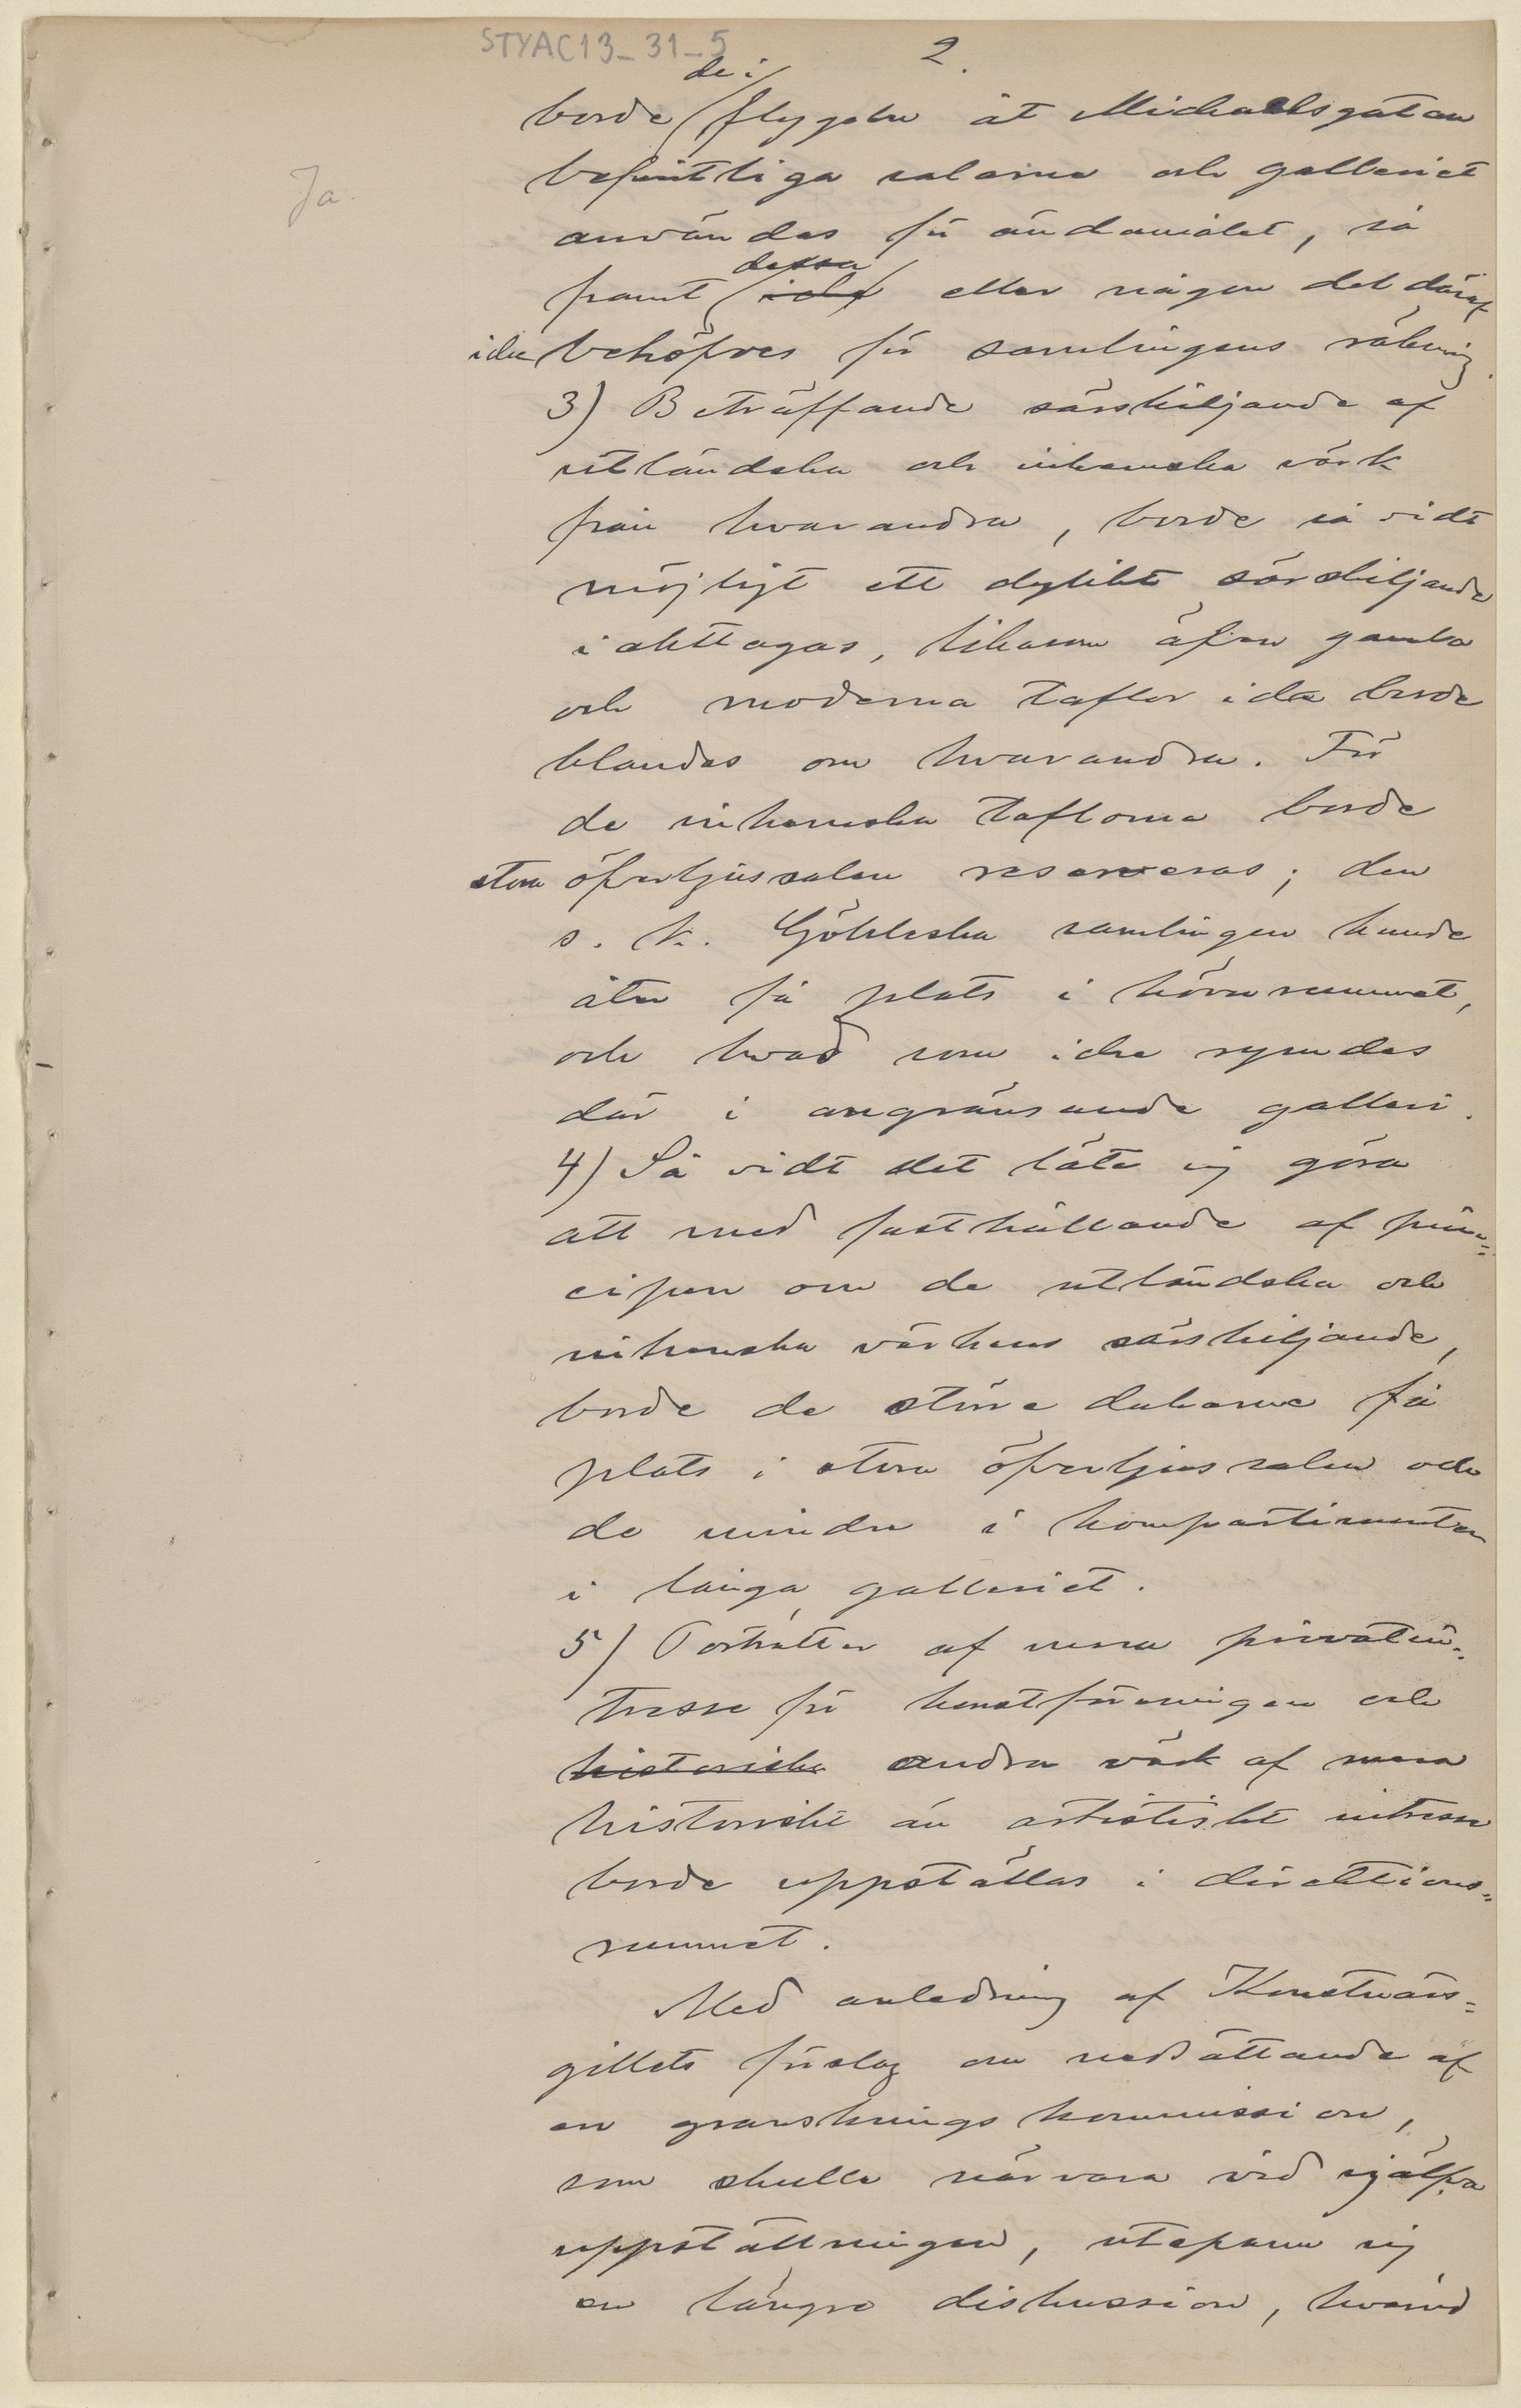 STYAC13_31_5
2.
de i
borde flygeln åt Michaelsgatan
Ja.
befintliga salarna och galleriet
användas för ändamålet, så
dessa
framt icke eller någon del däraf
icke behöfves för samlingens räkning.
3) Beträffande särskiljande af
utländska och inhemska värk
från hvarandra, borde så vidt
möjligt ett dylikt särskiljande
iakttagas, likasom äfven gamla
och moderna taflor icke borde
blandas om hvarandra. För
de inhemska taflorna borde
stora öfverljussalen reserveras; den
s. k. Göhleska samlingen kunde
åter få plats i hörnrummet,
och hvad som icke rymdes
där i angränsande galleri.
4) Så vidt det låte sig göra
att med fasthållande af prin=
cipen om de utländska och
inhemska värkens särskiljande,
borde de större dukarne få
plats i stora öfverljussalen och
de mindre i kompartimenten
i långa galleriet.
5) Porträtter af mera privatin=
tresse för konstföreningen och
historiska andra värk af mera
historiskt än artistiskt intresse
borde uppställas i direktions=
rummet.
Med anledning af Konstnärs=
gillets förslag om nedsättande af
en granskningskommission,
som skulle närvara vid själfva
uppställningen, utspann sig
en längre diskussion, hvarvid